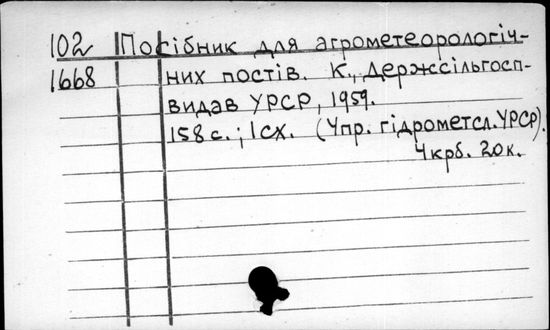 102 Посібник для агрометеорологіч-
1668 них постів. К., Держсільгосп-
видав УРСР, 1959.
158 с.; 1сх. (Упр. гідрометсл. УРСР).
4 крб. 20 к.